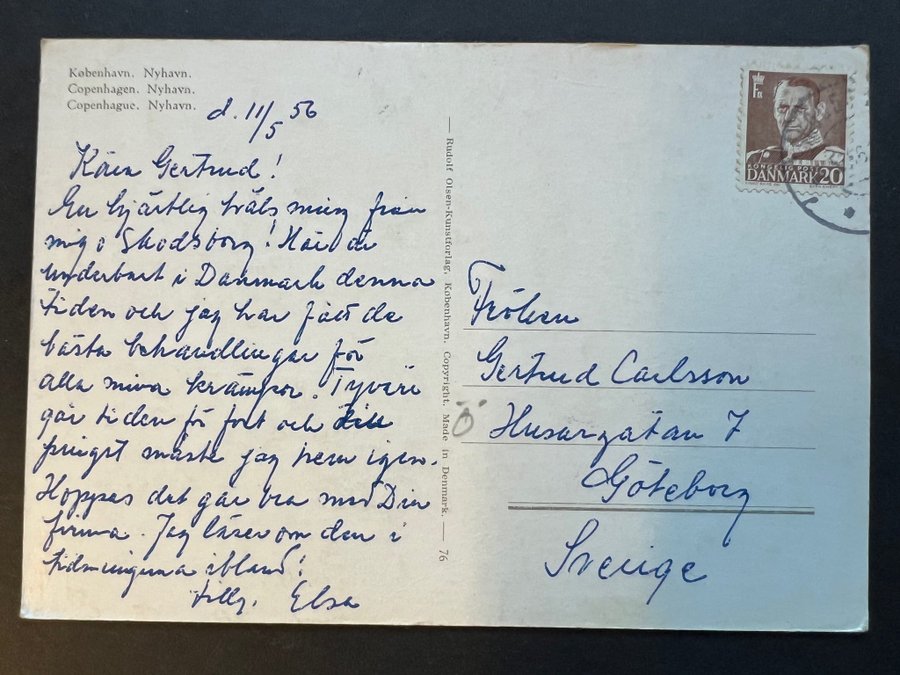 København. Nyhavn.
Copenhagen. Nyhavn.
Copenhague. Nyhavn.
d. 11/5 56
Kära Gertrud!
En hjärtlig hälsning från
mig o Skodsborg! Här är
underbart i Danmark denna
tiden och jag har fått de
bästa behandlingar för
alla mina krämpor. Tyvärr
går tiden för fort och till
pingst måste jag hem igen.
Hoppas det går bra med Din
firma. Jag läser om den i
tidningarna ibland!
Elsa
— Rudolf Olsen-Kunstforlag, København. Copyright. Made in Denmark. — 76
KONGELIG POST
DANMARK 20
Fröken
Gertrud Carlsson
Husargatan 7
Göteborg
Sverige